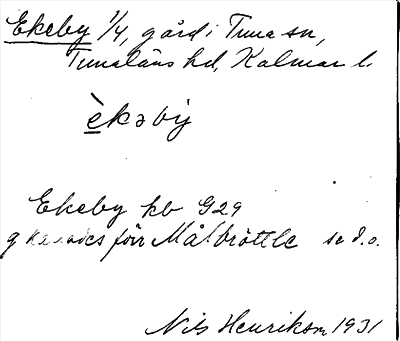 Ekeby 1/4, gård i Tuna sn,
Tunaläns hd, Kalmar l.
èkəbẏ
Ekeby kb G29
g kallades förr Målbröttle se d.o.
Nils Henrikson 1931